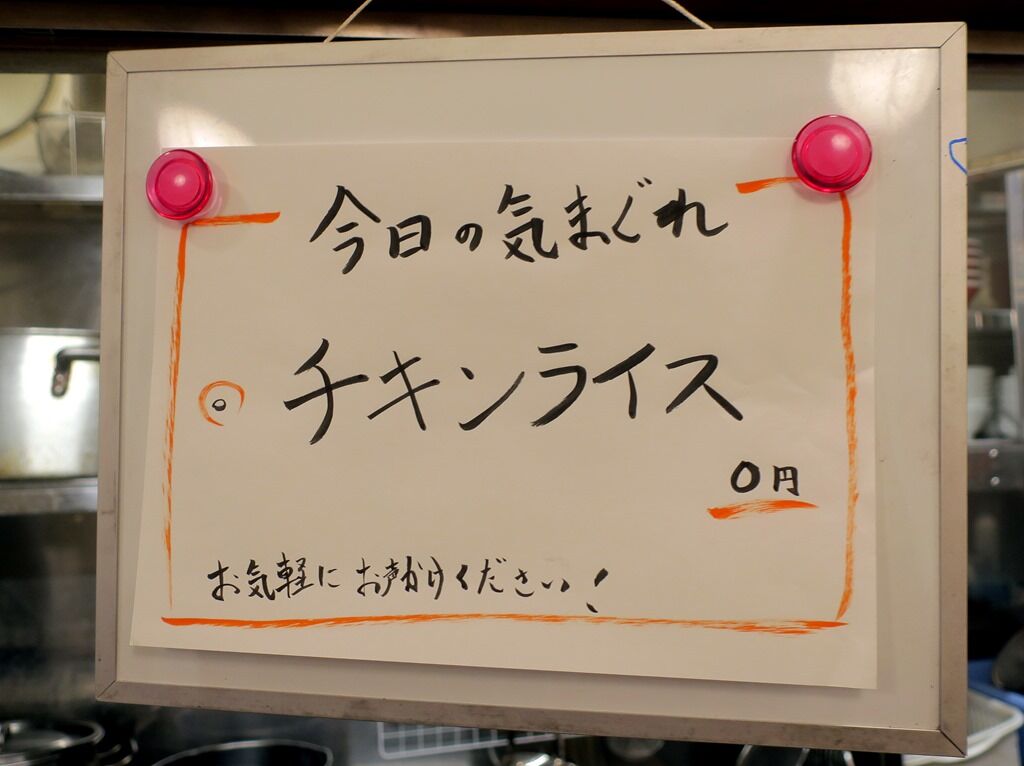 今日の気まぐれ
チキンライス
0円
お気軽にお声かけください!